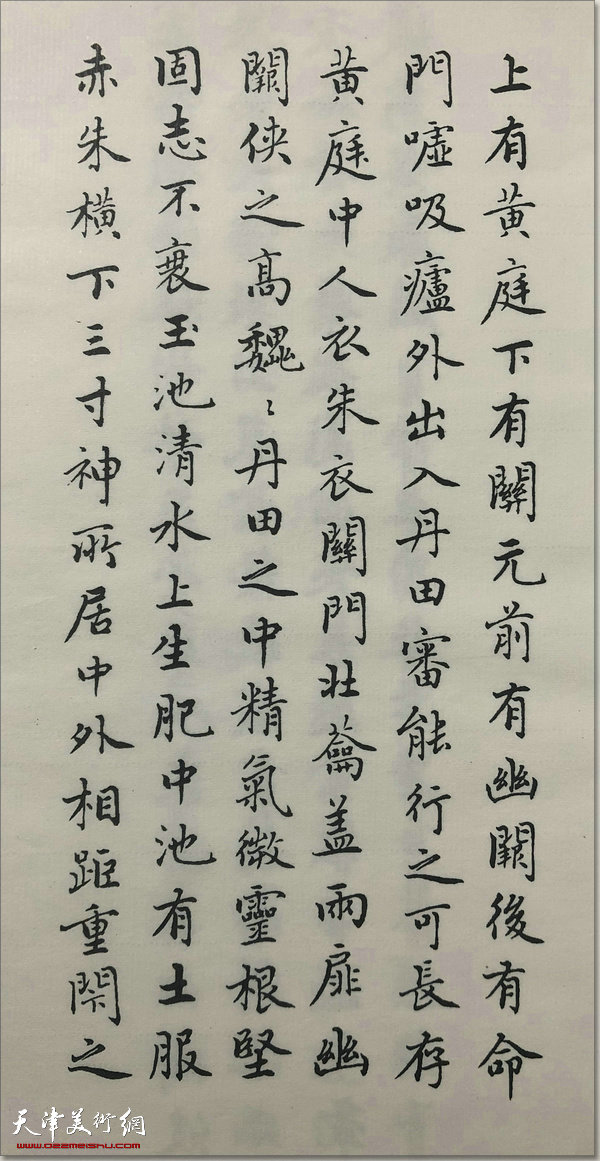 上有黄庭下有關元前有幽闕後有命
門噓吸廬外出入丹田審能行之可長存
黄庭中人衣朱衣關門壯蘥盖兩扉幽
闕俠之高魏〻丹田之中精氣微靈根堅
固志不衰玉池清水上生肥中池有土服
赤朱橫下三寸神所居中外相距重閇之
天津美術網
www.022meishu.com